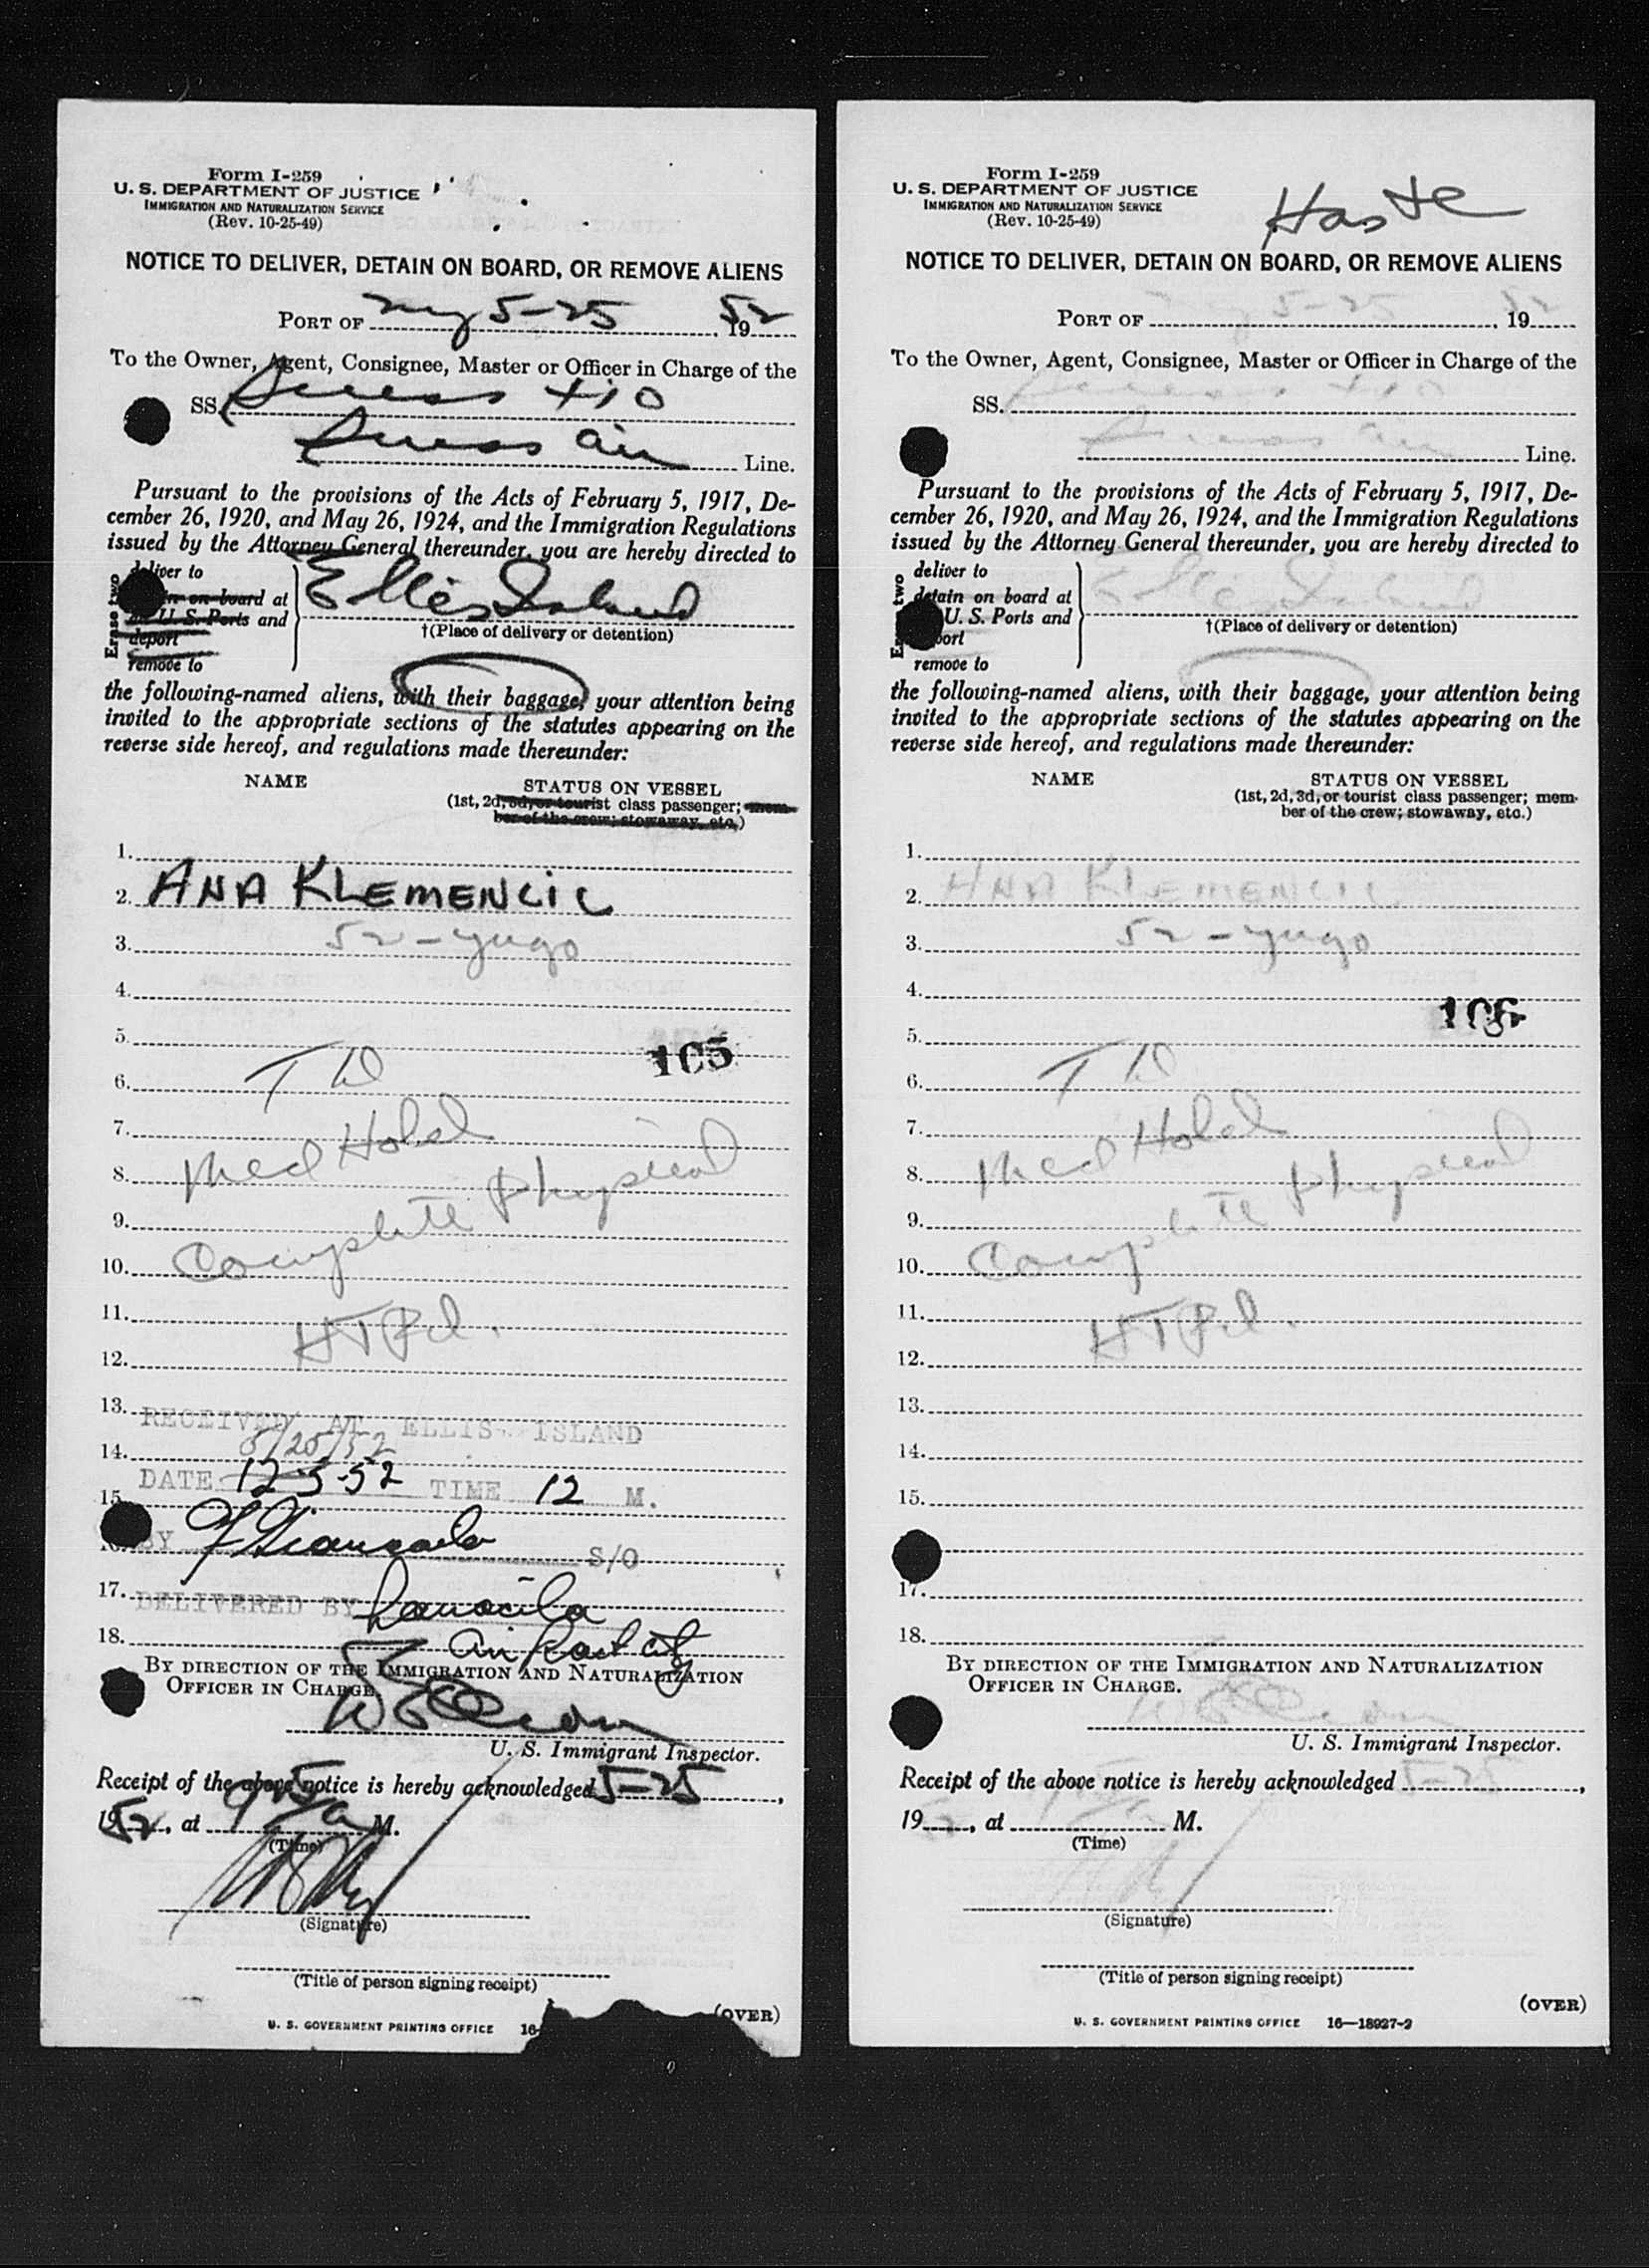 Form I-259
U. S. DEPARTMENT OF JUSTICE
IMMIGRATION AND NATURALIZATION SERVICE
(Rev. 10-25-49)
NOTICE TO DELIVER, DETAIN ON BOARD, OR REMOVE ALIENS
PORT OF ny 5-25, 1952
To the Owner, Agent, Consignee, Master or Officer in Charge of the
SS. Swiss 410
Swiss air Line.
Pursuant to the provisions of the Acts of February 5, 1917, De-
cember 26, 1920, and May 26, 1924, and the Immigration Regulations
issued by the Attorney General thereunder, you are hereby directed to
Erase two
deliver to
on board at
U. S. Ports and
deport
remove to
Ellis Island
†(Place of delivery or detention)
the following-named aliens, with their baggage, your attention being
invited to the appropriate sections of the statutes appearing on the
reverse side hereof, and regulations made thereunder:
NAME
STATUS ON VESSEL
(1st, 2d, 3d, or tourist class passenger; mem-
ber of the crew; stowaway, etc.)
1.
2. ANA KLEMENCIC
3. 52 - yugo
4.
5. 105
6. TD
7.
8. Med Hold
9.
10. Complete Physical
11.
12.
13. RECEIVED AT ELLIS ISLAND
14. 5/25/52
DATE 12-5-52 TIME 12 M.
15.
BY S/O
17. DELIVERED BY
18. Air
BY DIRECTION OF THE IMMIGRATION AND NATURALIZATION
OFFICER IN CHARGE
U. S. Immigrant Inspector.
Receipt of the above notice is hereby acknowledged 5-25,
1952, at 9 45 a M.
(Time)
(Signature)
(Title of person signing receipt)
(OVER)
U. S. GOVERNMENT PRINTING OFFICE 16-
Form I-259
U. S. DEPARTMENT OF JUSTICE
IMMIGRATION AND NATURALIZATION SERVICE
(Rev. 10-25-49)
Haste
NOTICE TO DELIVER, DETAIN ON BOARD, OR REMOVE ALIENS
PORT OF 5-25, 1952
To the Owner, Agent, Consignee, Master or Officer in Charge of the
SS. Swiss 410
Swiss air Line.
Pursuant to the provisions of the Acts of February 5, 1917, De-
cember 26, 1920, and May 26, 1924, and the Immigration Regulations
issued by the Attorney General thereunder, you are hereby directed to
deliver to
detain on board at
U. S. Ports and
remove to
Ellis Island
†(Place of delivery or detention)
the following-named aliens, with their baggage, your attention being
invited to the appropriate sections of the statutes appearing on the
reverse side hereof, and regulations made thereunder:
NAME
STATUS ON VESSEL
(1st, 2d, 3d, or tourist class passenger; mem-
ber of the crew; stowaway, etc.)
1.
2. ANA KLEMENCIC
3. 52 - yugo
4.
5. 106
6. TD
7.
8. Med Hold
9.
10. Complete Physical
11.
12.
13.
14.
15.
17.
18.
BY DIRECTION OF THE IMMIGRATION AND NATURALIZATION
OFFICER IN CHARGE.
U. S. Immigrant Inspector.
Receipt of the above notice is hereby acknowledged 5-25,
1952, at M.
(Time)
(Signature)
(Title of person signing receipt)
(OVER)
U. S. GOVERNMENT PRINTING OFFICE 16—18927-2